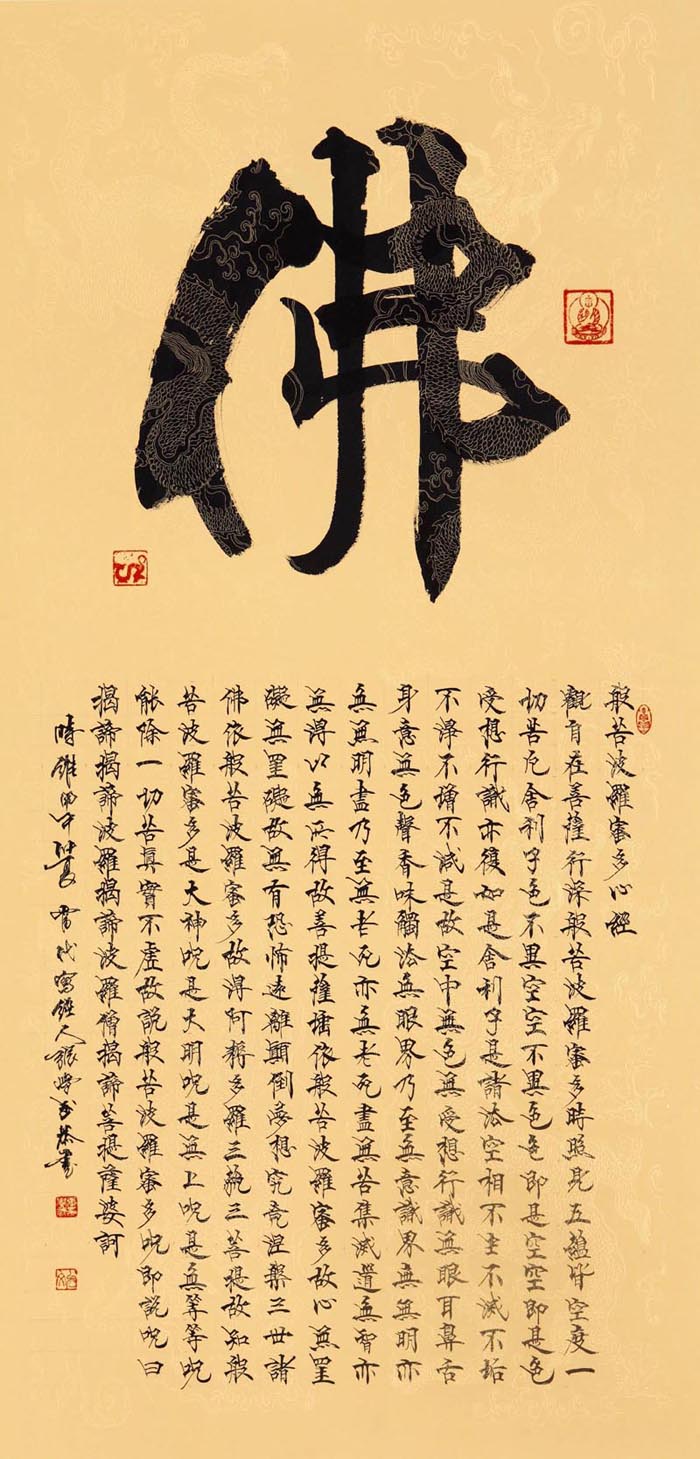 佛
般若波羅蜜多心經
觀自在菩薩行深般若波羅蜜多時照見五蘊皆空度一
切苦厄舍利子色不異空空不異色色即是空空即是色
受想行識亦復如是舍利子是諸法空相不生不滅不垢
不淨不增不減是故空中無色無受想行識無眼耳鼻舌
身意無色聲香味觸法無眼界乃至無意識界無無明亦
無無明盡乃至無老死亦無老死盡無苦集滅道無智亦
無得以無所得故菩提薩埵依般若波羅蜜多故心無罣
礙無罣礙故無有恐怖遠離顛倒夢想究竟涅槃三世諸
佛依般若波羅蜜多故得阿耨多羅三藐三菩提故知般
若波羅蜜多是大神呪是大明呪是無上呪是無等等呪
能除一切苦真實不虛故說般若波羅蜜多呪即說呪曰
揭諦揭諦波羅揭諦波羅僧揭諦菩提薩婆訶
時維甲午仲夏當代寫經人張學武恭書